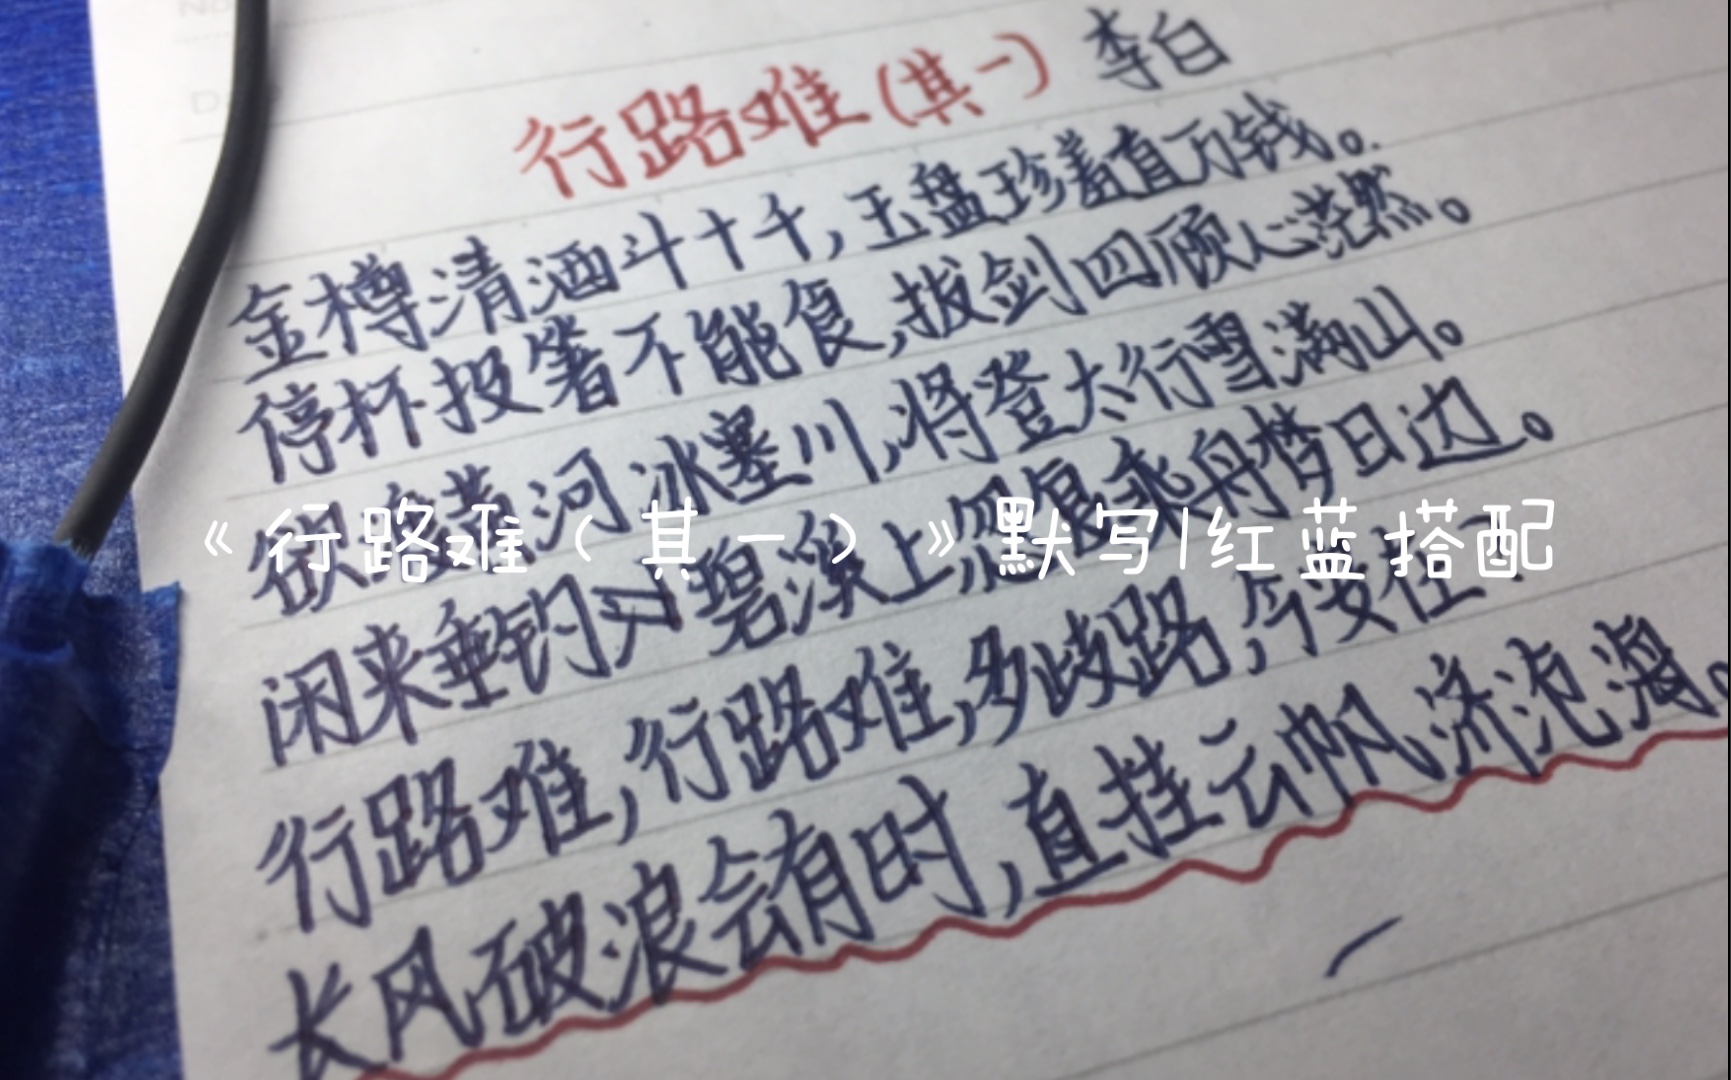 行路难(其一) 李白
金樽清酒斗十千,玉盘珍羞直万钱。
停杯投箸不能食,拔剑四顾心茫然。
欲渡黄河冰塞川,将登太行雪满山。
闲来垂钓碧溪上,忽复乘舟梦日边。
《行路难(其一)》默写|红蓝搭配
行路难,行路难,多歧路,今安在?
长风破浪会有时,直挂云帆济沧海。